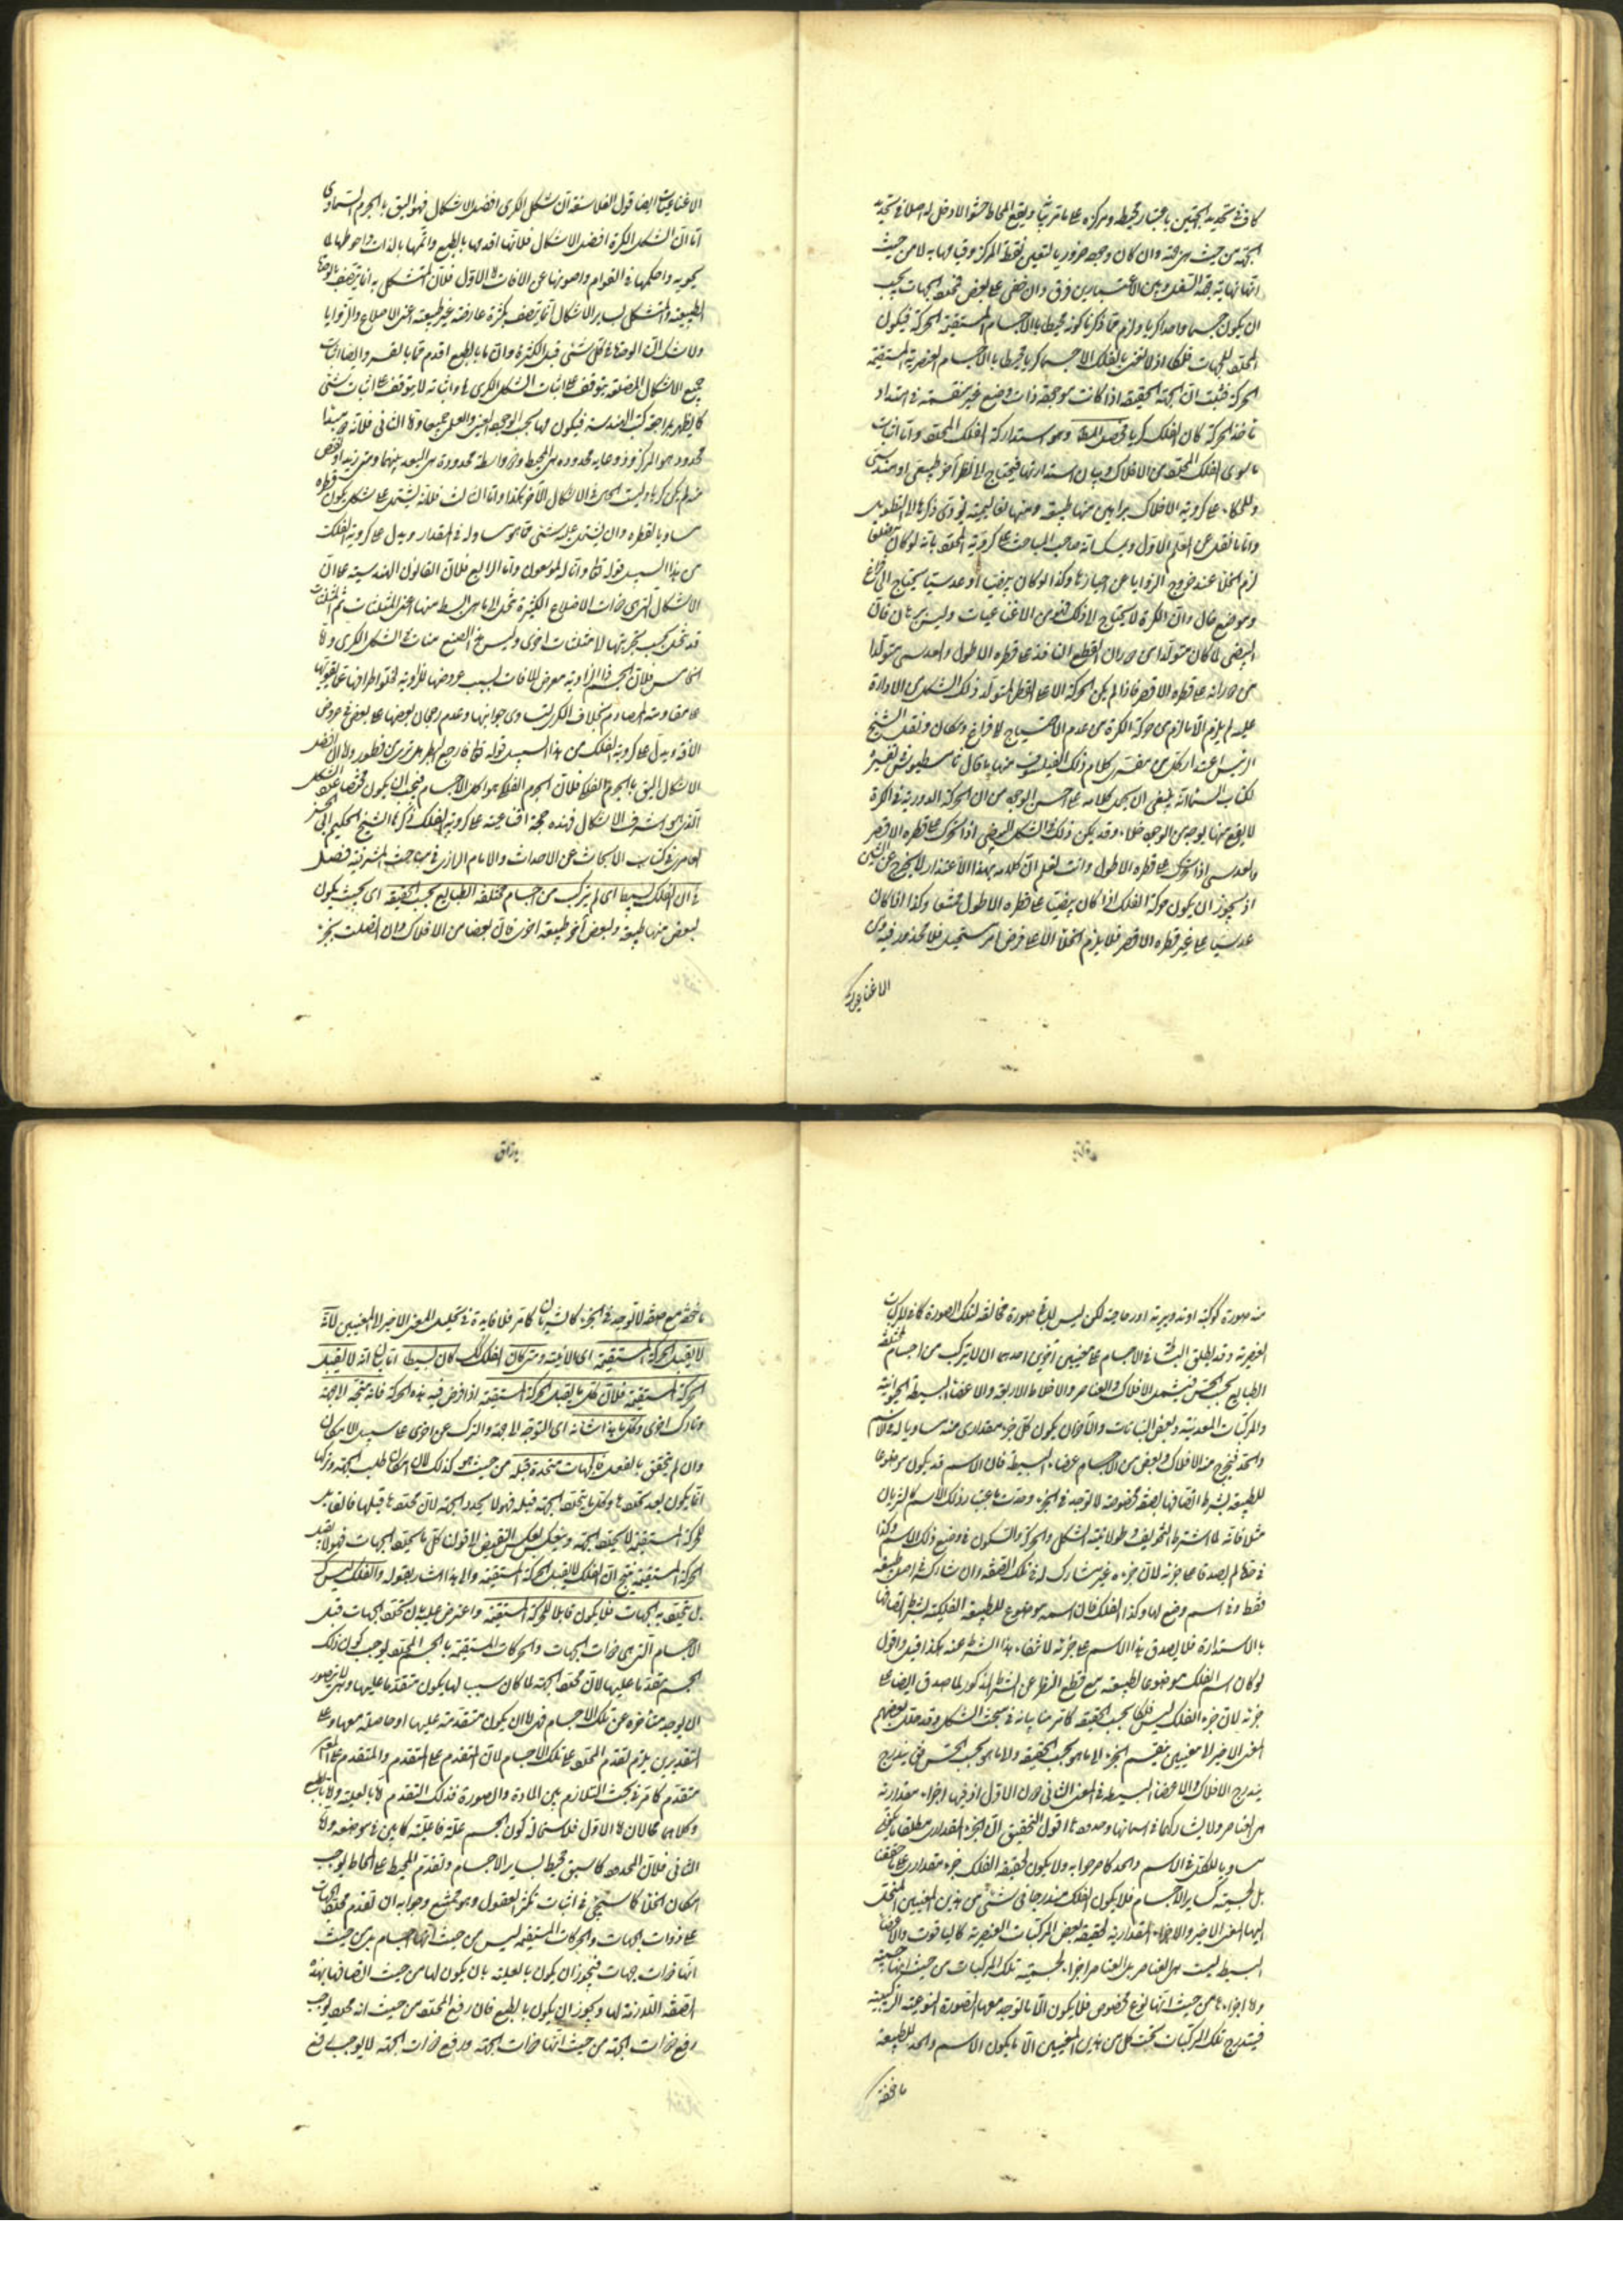 كاف في تحديد الجهتين باعتبار محيطه ومركزه على ما قررنا ويقع المحاط حشوا لا دخل له اصلا في تحديد
الجهة من حيث هي جهة وان كان وجوده ضروريا لتعين نقطة المركز وقيامها به لا من حيث
انها نهاية جهة السفل وبين الاعتبارين فرق وان خفي على بعض فمحدد الجهات يجب
ان يكون جسما واحدا كريا ولزم مما ذكرنا كونه محيطا بالاجسام المستقيمة الحركة فيكون
المحدد للجهات فلكا اذ لا نعني بالفلك الا جسما كريا محيطا بالاجسام العنصرية المستقيمة
الحركة فثبت ان الجهة الحقيقية اذا كانت موجودة ذات وضع غير منقسمة في امتداد
مأخذ الحركة كان الفلك كريا فحصل المط وهو استدارة الفلك المحدد واما اثبات
ما سوى الفلك المحدد من الافلاك وبيان استدارتها فيحتاج الى نظر آخر طبيعي او هندسي
وللحكماء على كروية الافلاك براهين منها طبيعية ومنها تعاليمية يؤدي ذكرها الى التطويل
واما ما نقل عن المعلم الاول صاحب المباحث على كروية المحدد بانه لو كان مضلعا
لزم الخلأ عند خروج الزوايا عن احيازها وكذا لو كان بيضيا او عدسيا يحتاج الى فراغ
وموضع خال وان الكرة لا يحتاج الى ذلك فهو من الاقناعيات وليس ببرهان فان
البيضي لما كان متولدا من دوران القطع الناقص على قطره الاطول والعدسي متولدا
من دورانه على قطره الاقصر فاذا لم يكن الحركة الا على القطر المتولد ذلك الشكل من الادارة
عليه لم يلزم الا ما لزم من حركة الكرة من عدم الاحتياج الى فراغ ومكان ونقل الشيخ
الرئيس عند كلام ذلك الفيلسوف منها ما قال ثامسطيوس في تفسيره
لكتاب السماء انه ينبغي ان يحمل كلامه على احسن الوجوه من ان الحركة الدورية في الكرة
لا يقع منها بوجه من الوجوه خلاء وقد يمكن ذلك في الشكل البيضي اذا تحرك على قطره الاقصر
والعدسي اذا تحرك على قطره الاطول وانت تعلم ان كلامه بهذا الاعتذار لا يخرج عن
اذ يجوز ان يكون حركة الفلك اذا كان بيضيا على قطره الاطول وكذا اذا كان
عدسيا على غير قطره الاقصر فلا يلزم الخلأ الا على فرض امر مستحيل فلا محذور فيه ومن
الاقناعيات
الاقناعيات ايضا قول الفلاسفة ان شكل الكري افضل الاشكال فهو اليق بالجرم السماوي
اما ان الشكل الكرة افضل الاشكال فلانها اقدمها بالطبع واتمها بالذات واحوطها لما
يحويه واحكمها في القوام واصونها عن الافات اما الاول فلان المتشكل به انما يتصف بالوحدة
الطبيعية والمتشكل بسائر الاشكال انما يتصف بكثرة عارضة غير طبيعية اعني الاضلاع والزوايا
ولا شك ان الوحدة في كل شئ قبل الكثرة وان ما بالطبع اقدم مما بالقسر وايضا اثبات
جميع الاشكال المضلعة يتوقف على اثبات الشكل الكري واثباته لا يتوقف على اثبات شئ
كما يظهر بمراجعة كتب الهندسة فيكون بحسب الوجود العيني والعلمي جميعا واما الثاني فلانه
محدود هو المركز وذو غاية محدودة هي المحيط وذو واسطة محدودة هي البعد بينهما ومتى زيد او نقص
منه لم يكن كرة وليست الحال في الاشكال الآخر هكذا واما الثالث فلانه يشتمل على شكل يكون قطره
مساويا لقطره وان يشتمل عليه شئ مما هو مساو له في المقدار ويدل على كروية الفلك
من هذا السبيل قوله تعالى وانا لموسعون واما الرابع فلان القانون الهندسية على ان
الاشكال التي هي ذات الاضلاع الكثيرة تنحل الى ما هي ابسط منها اعني المثلثات ثم المثلثات
قد تنحل بحسب تجزيتها الى مثلثات اخرى وليس هذا الصنع متأت في الشكل الكري واما
الخامس فلان الجسم ذا الزاوية معرض للافات بسبب عروضها للزاوية
على مقاومة المصادم بخلاف الكرة لتساوي جوانبها وعدم رجحان بعضها على بعض في عروض
الآفة ويدل على كروية الفلك من هذا السبيل قوله تعالى فارجع البصر هل ترى من فطور واما ان افضل
الاشكال اليق بالجرم الفلك فلان الجرم الفلك هو اكمل الاجسام فيجب ان يكون مختصا بالشكل
الذي هو اشرف الاشكال فهذه حجة اقناعية على كروية الفلك ذكرها الشيخ الحكيم ابو الحسن
العامري في كتاب الابحاث عن الاحداث والامام الرازي في مباحث المشرقية فصل
في ان الفلك بسيط اي لم يتركب من اجسام مختلفة الطبايع بحسب الحقيقة اي بحيث يكون
لبعض منها طبيعة ولبعض آخر طبيعة اخرى فان بعضا من الافلاك وان انفصلت بجزء
منه صورة كوكبية او تدويرية او خارجية لكن ليس للباقي صورة مخالفة لتلك الصورة كما في المركبات
العنصرية وقد يطلق البسيط في الاجسام على معنيين آخرين احدهما ان لا يتركب من اجسام مختلفة
الطبايع بحسب الحس فيشمل الافلاك والعناصر والاخلاط الاربعة والاعضاء البسيطة الحيوانية
والمركبات المعدنية وبعض النباتات والآخر ان يكون كل جزء مقداري منه مساويا له في الاسم
والحد فيخرج منه الافلاك وبعض من الاجسام عضاء البسيطة فان الاسم قد يكون موضوعا
للطبيعة بشرط اتصافها بصفة مخصوصة لا توجد في الجزء وحدت باعتبار ذلك الاسم كالشريان
مثلا فانه لما اشترط التجويف وطولانية الشكل والحركة والسكون في وضع ذلك الاسم وكذا
في حده لم يصدقا على جزئه لان جزءه غير مشارك له في تلك الصفة وان شارك في اصل طبيعة
فقط في اسم وضع لها وكذا الفلك فان اسمه موضوع للطبيعة الفلكية بشرط اتصافها
بالاستدارة فلا يصدق هذا الاسم على جزئه لانتفاء هذا الشرط عنه هكذا قيل واقول
لو كان اسم الفلك موضوعا لطبيعته مع قطع النظر عن الشرط المذكور لما صدق ايضا على
جزئه لان جزء الفلك ليس فلكا بحسب الحقيقة كما مر منا بيانه في مبحث الشكل وقد حلل بعضهم
المعنى الاخير الى معنيين بتقسيم الجزء الى ما هو بحسب الحقيقة والى ما هو بحسب الحس حتى يندرج
يندرج الافلاك والاعضاء البسيطة في المعنى الثاني دون الاول اذ فيها اجزاء مقدارية
هي العناصر ولا يشاركها في اسمائها وحدودها اقول التحقيق ان الجزء المقداري مطلقا
مساويا للكل في الاسم والحد كما صرحوا به ولا يكون لحقيقة الفلك جزء مقداري
بل لجسميته كسائر الاجسام فلا يكون الفلك مندرجا في شئ من هذين المعنيين المنحل
اليهما المعنى الاخير والاجزاء المقدارية لحقيقة بعض المركبات العنصرية كالياقوت والاعضاء
البسيطة ليست هي العناصر بل العناصر اجزاء لجسمية تلك المركبات من حيث انها جسمية
واما اجزاءها من حيث انها نوع مخصوص فلا يكون الا ما توجد معها الصورة النوعية التركيبية
فيندرج تلك المركبات تحت كل من هذين المعنيين الا ما يكون الاسم والحد للطبيعة
ماخوذة
ماخوذة مع صفة لا توجد في الجزء كالشريان كما مر فلا فايدة في تحليل المعنى الاخير الى المعنيين لانه
لا يقبل الحركة المستقيمة اي الاينية ومتى كان الفلك كك كان بسيطا اما انه لا يقبل
الحركة المستقيمة فلان كل ما يقبل الحركة المستقيمة اذا فرض فيه هذه الحركة فانه متجه الى جهة
وتارك اخرى وكل ما هذا شانه اي التوجه الى جهة والترك عن اخرى على سبيل الامكان
وان لم يتحقق بالفعل فالجهات متحددة قبله من حيث هو كذلك لان امكان طلب الجهة وتركها
انما يكون بعد تحددها وكل ما يتحدد الجهة قبله فهو لا يحدد الجهة لان محددها قبلها فالقابل
للحركة المستقيمة لا يحدد الجهة وينعكس بعكس النقيض الى قولنا كل ما يحدد الجهات فهو لا يقبل
الحركة المستقيمة ينتج ان الفلك لا يقبل الحركة المستقيمة والى هذا اشار بقوله والفلك ليس كك
بل تحدد به الجهات فلا يكون قابلا للحركة المستقيمة واعترض عليه بان تحدد الجهات قبل
الاجسام التي هي ذوات الجهات والحركات المستقيمة بالجسم المحدد يوجب كون ذلك
الجسم متقدما عليها لان محدد الجهة لما كان سببا لها يكون متقدما عليها ولا يتصور
ان يوجد متأخرة عن تلك الاجسام فهي اما ان يكون متقدمة عليها او حاصلة معها وعلى
التقديرين يلزم تقدم المحدد على تلك الاجسام لان المتقدم على المتقدم والمتقدم على المع
متقدم كما مر في بحث التلازم بين المادة والصورة فذلك التقدم اما بالعلية واما بالطبع
وكلاهما محالان اما الاول فلاستحالة كون الجسم علة فاعلية كما بين في موضعه واما
الثاني فلان المحدد كما سبق محيط بسائر الاجسام وتقدم المحيط على المحاط يوجب
امكان الخلأ كما سيجئ في اثبات تكثر العقول وهو ممتنع وجوابه ان تقدم محدد الجهات
على ذوات الجهات والحركات المستقيمة ليس من حيث انها اجسام بل من حيث
انها ذوات جهات فيجوز ان يكون بالعلية بان يكون لها من حيث اتصافها بهذه
الصفة اللازمة لها ويجوز ان يكون بالطبع فان رفع المحدد من حيث انه محدد يوجب
رفع ذوات الجهة من حيث انها ذوات الجهة ورفع ذوات الجهة لا يوجب رفع